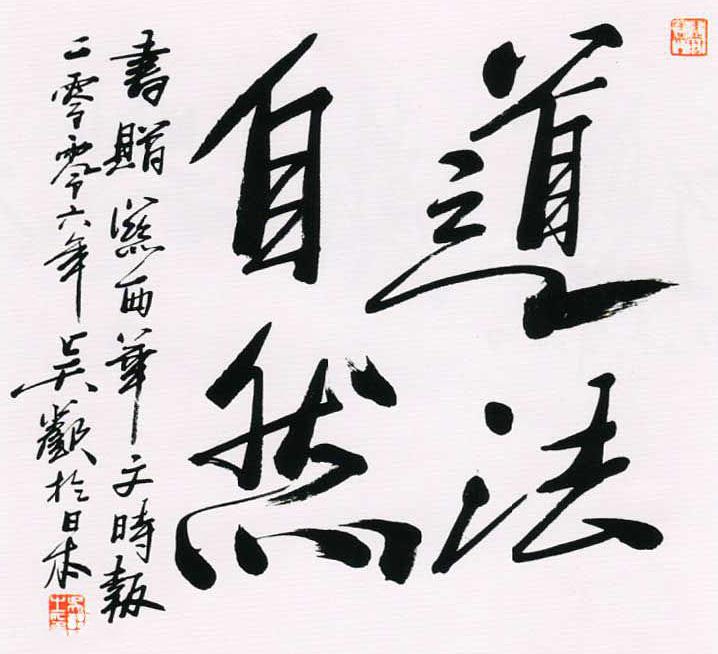 道法
自然
書贈西華文時報
二零零六年吴歡於日本